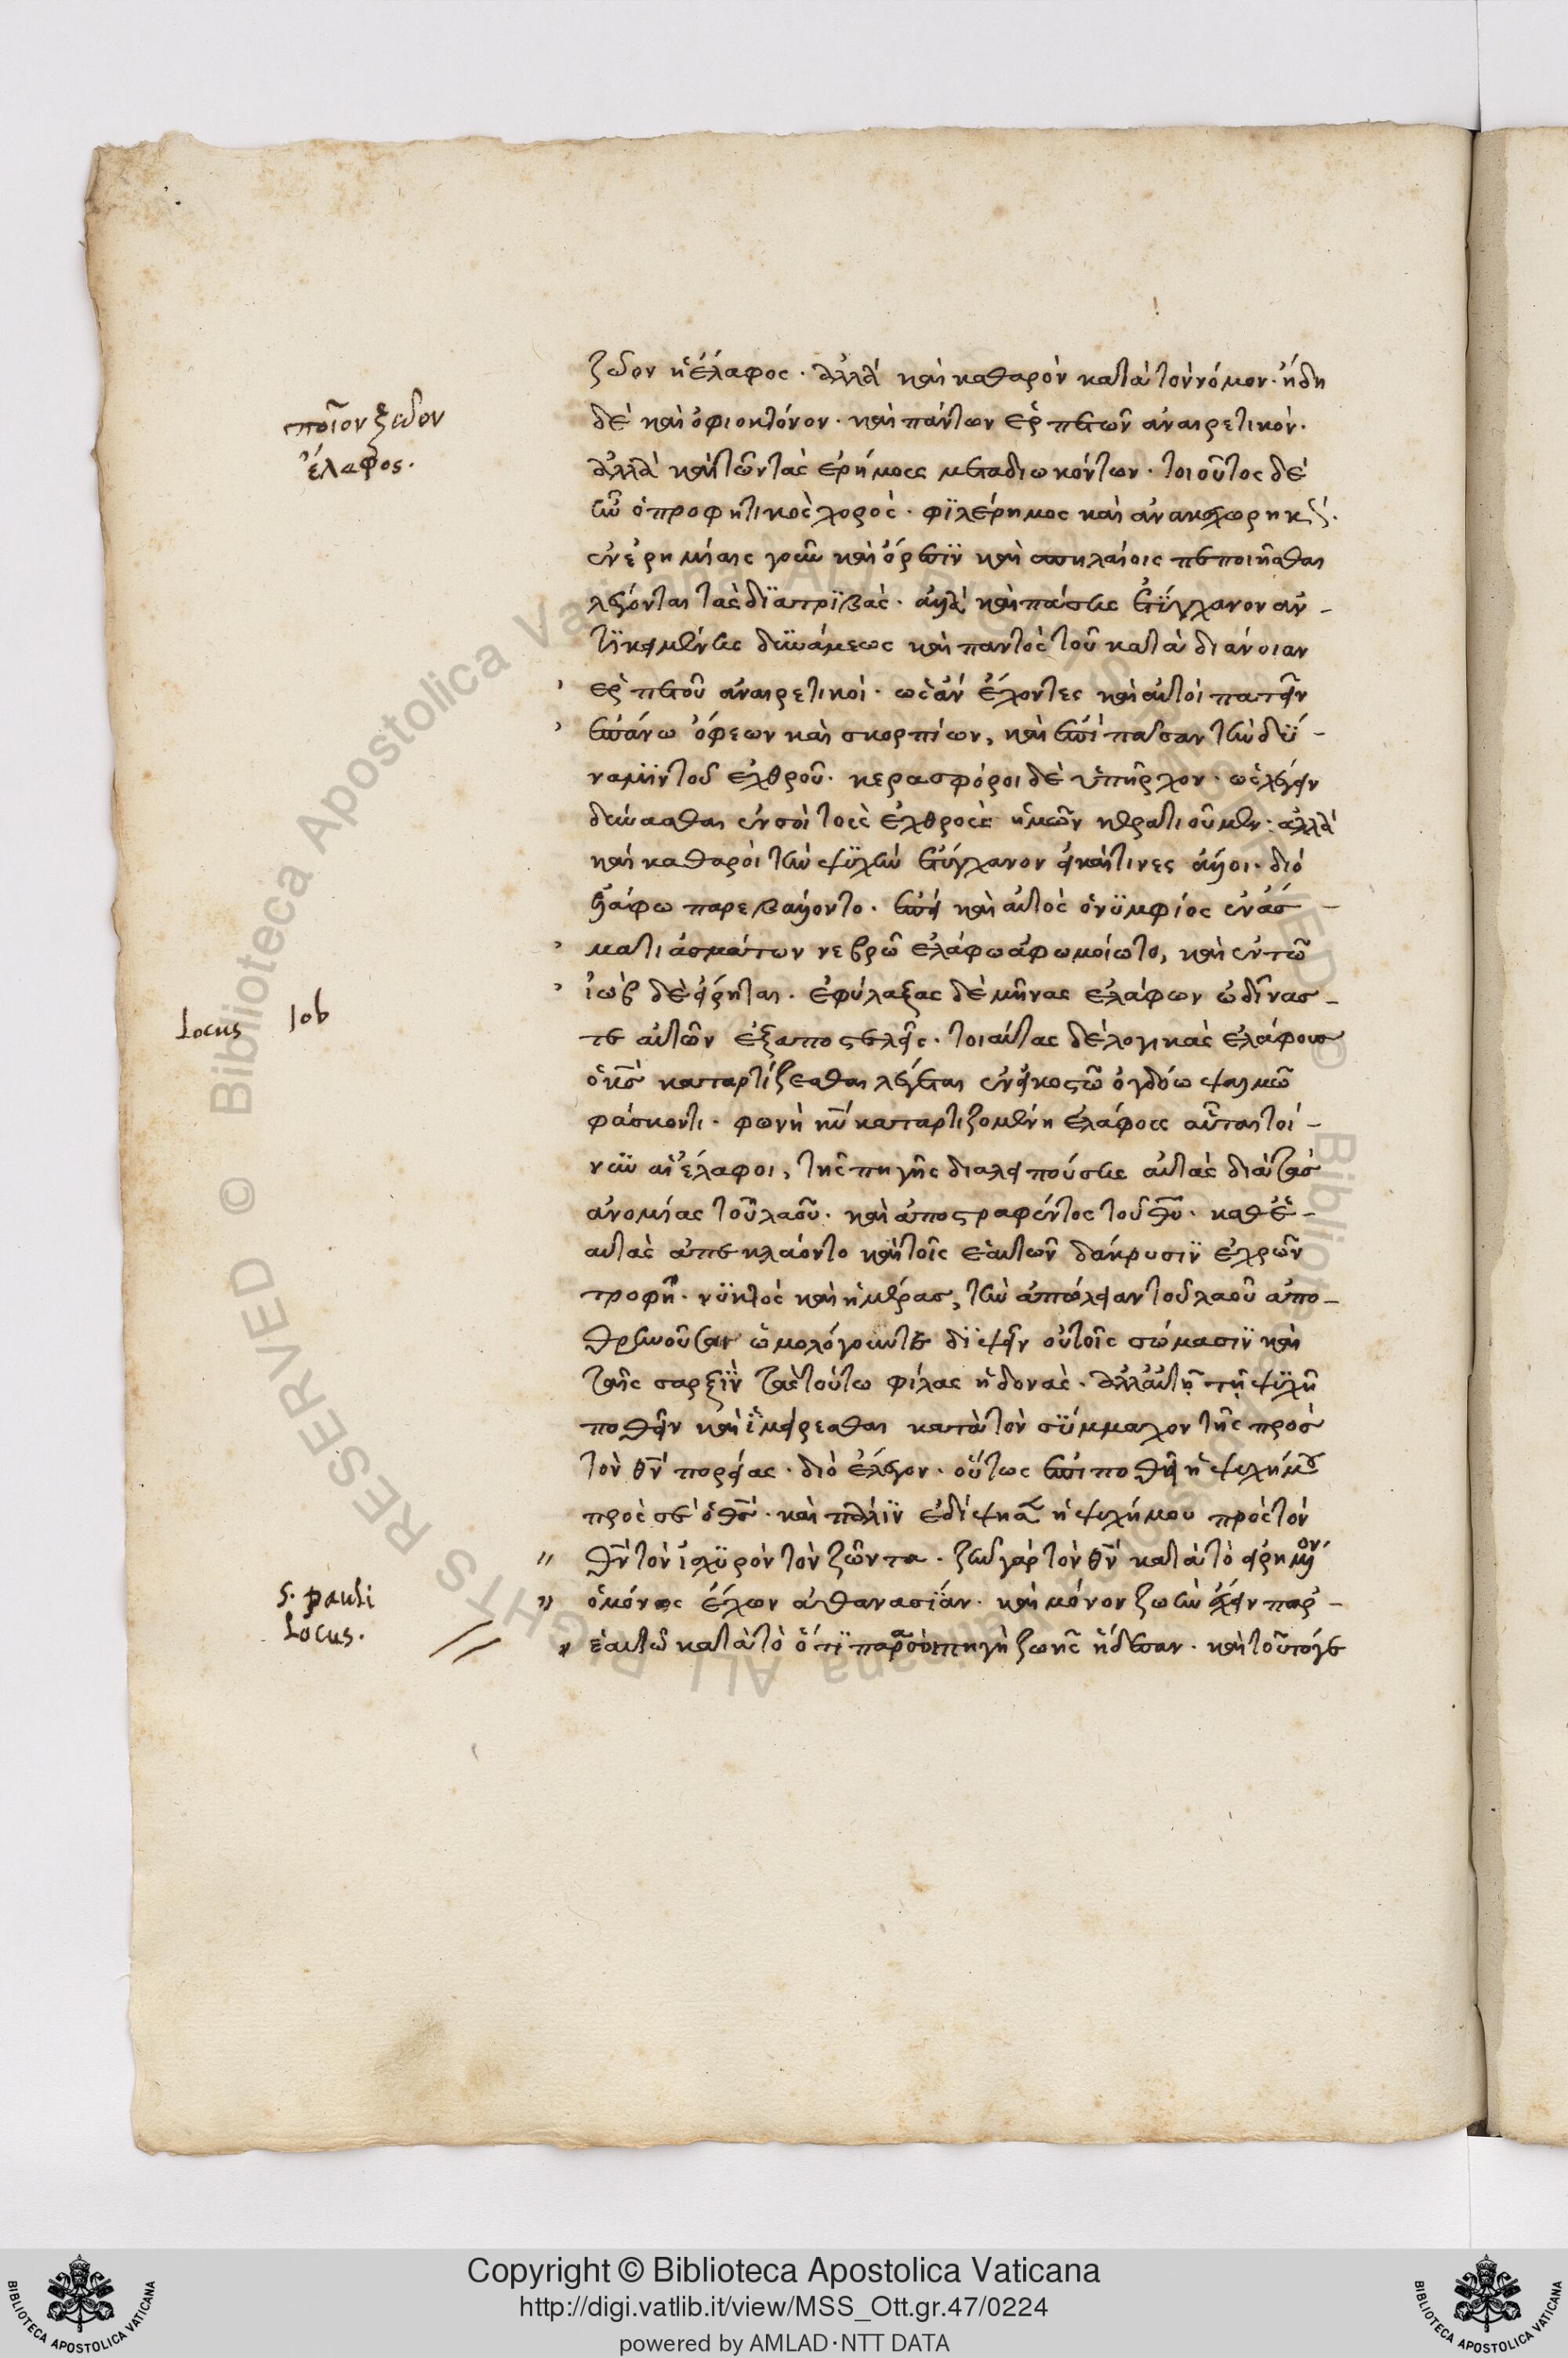 ζῶον ἡ ἔλαφος· ἀλλὰ καὶ καθαρὸν κατὰ τὸν νόμον· ἤδη
δὲ καὶ ὀφιοκτόνον· καὶ πάντων ἑρπετῶν ἀναιρετικόν·
ἀλλὰ καὶ τῶν τὰς ἐρήμους μεταδιωκόντων· τοιοῦτος δὲ
ἦν ὁ προφητικὸς χορός· φιλέρημος καὶ ἀνακεχωρηκώς·
ἐν ἐρημίαις γοῦν καὶ ὄρεσιν καὶ σπηλαίοις πεποιῆσθαι
λέγονται τὰς διατριβάς· ἀλλὰ καὶ πάσης ἐτύγχανον ἀν-
τικειμένης δυνάμεως καὶ παντὸς τοῦ κατὰ διάνοιαν
ἑρπετοῦ ἀναιρετικοί· ὡς ἂν ἔχοντες καὶ αὐτοὶ πατεῖν
ἐπάνω ὄφεων καὶ σκορπίων, καὶ ἐπὶ πᾶσαν τὴν δύ-
ναμιν τοῦ ἐχθροῦ· κερασφόροι δὲ ὑπῆρχον· ὡς λέγειν
δύνασθαι ἐν σοὶ τοὺς ἐχθροὺς ἡμῶν κερατιοῦμεν· ἀλλὰ
καὶ καθαροὶ τὴν ψυχὴν ἐτύγχανον εἰ καί τινες ἄλλοι· διὸ
ἐλάφω παρεβάλλοντο· ἐπεὶ καὶ αὐτὸς ὁ νυμφίος ἐν ἄσ-
ματι ἀσμάτων νεβρῶ ἐλάφω ἀφωμοίωτο, καὶ ἐν τῶ
ἰὼβ δὲ εἴρηται· ἐφύλαξας δὲ μῆνας ἐλάφων ὠδῖνας
τε αὐτῶν ἐξαποστελεῖς· τοιαύτας δὲ λογικὰς ἐλάφους
ὁ κς καταρτίζεσθαι λέγεται ἐν εἰκοστῶ ὀγδόω ψαλμῶ
φάσκοντι· φωνὴ κυ καταρτιζομένη ἐλάφους αὗται τοί-
νυν αἱ ἔλαφοι, τῆς πηγῆς διαλειπούσης αὐτὰς διὰ τὰς
ἀνομίας τοῦ λαοῦ· καὶ ἀποστραφέντος τοῦ θυ· καθ' ἑ-
αυτὰς ἀπεκλάοντο καὶ τοῖς ἑαυτῶν δάκρυσιν ἐχρῶν
τροφῆ· νυκτὸς καὶ ἡμέρας, τὴν ἀπώλειαν τοῦ λαοῦ ἀπο-
θρηνοῦσαι ὡμολόγουν τε διψεῖν οὐ τοῖς σώμασιν καὶ
ταῖς σαρξὶν τὰς τούτω φίλας ἡδονάς· ἀλλ' αὐτῆ τῆ ψυχῆ
ποθεῖν καὶ ἱμείρεσθαι κατὰ τὸν σύμμαχον τῆς πρὸς
τὸν θν πορείας· διὸ ἔλεγον· οὕτως ἐπιποθεῖ ἡ ψυχή μου
πρὸς σὲ ὁ θς· καὶ πάλιν ἐδίψησεν ἡ ψυχή μου πρὸς τὸν
θν τὸν ἰσχυρὸν τὸν ζῶντα· ζῆ γὰρ τὸν θν κατὰ τὸ εἰρημένον
ὁ μόνος ἔχων ἀθανασίαν· καὶ μόνον ζωὴν ἔχειν παρ'
ἑαυτῶ κατὰ τὸ ὅτι παρὰ σοὶ πηγὴ ζωῆς ἤδεσαν· καὶ τοῦτό γε
ποῖον ζῶον
ἔλαφος.
Locus Iob
S. pauli
Locus.
Copyright © Biblioteca Apostolica Vaticana
http://digi.vatlib.it/view/MSS_Ott.gr.47/0224
powered by AMLAD·NTT DATA
BIBLIOTECA APOSTOLICA VATICANA
BIBLIOTECA APOSTOLICA VATICANA